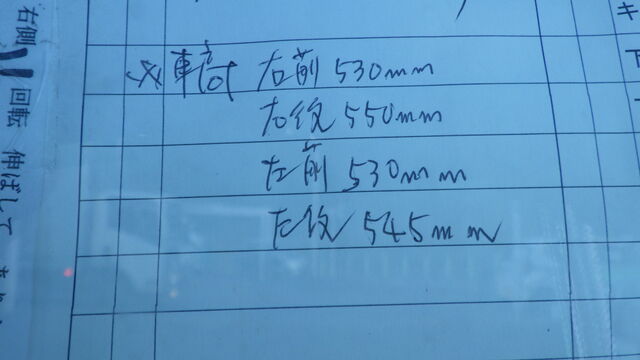 ※車高 右前 530mm
右後 550mm
左前 530mm
左後 545mm
右側
回転 伸ばして
キ